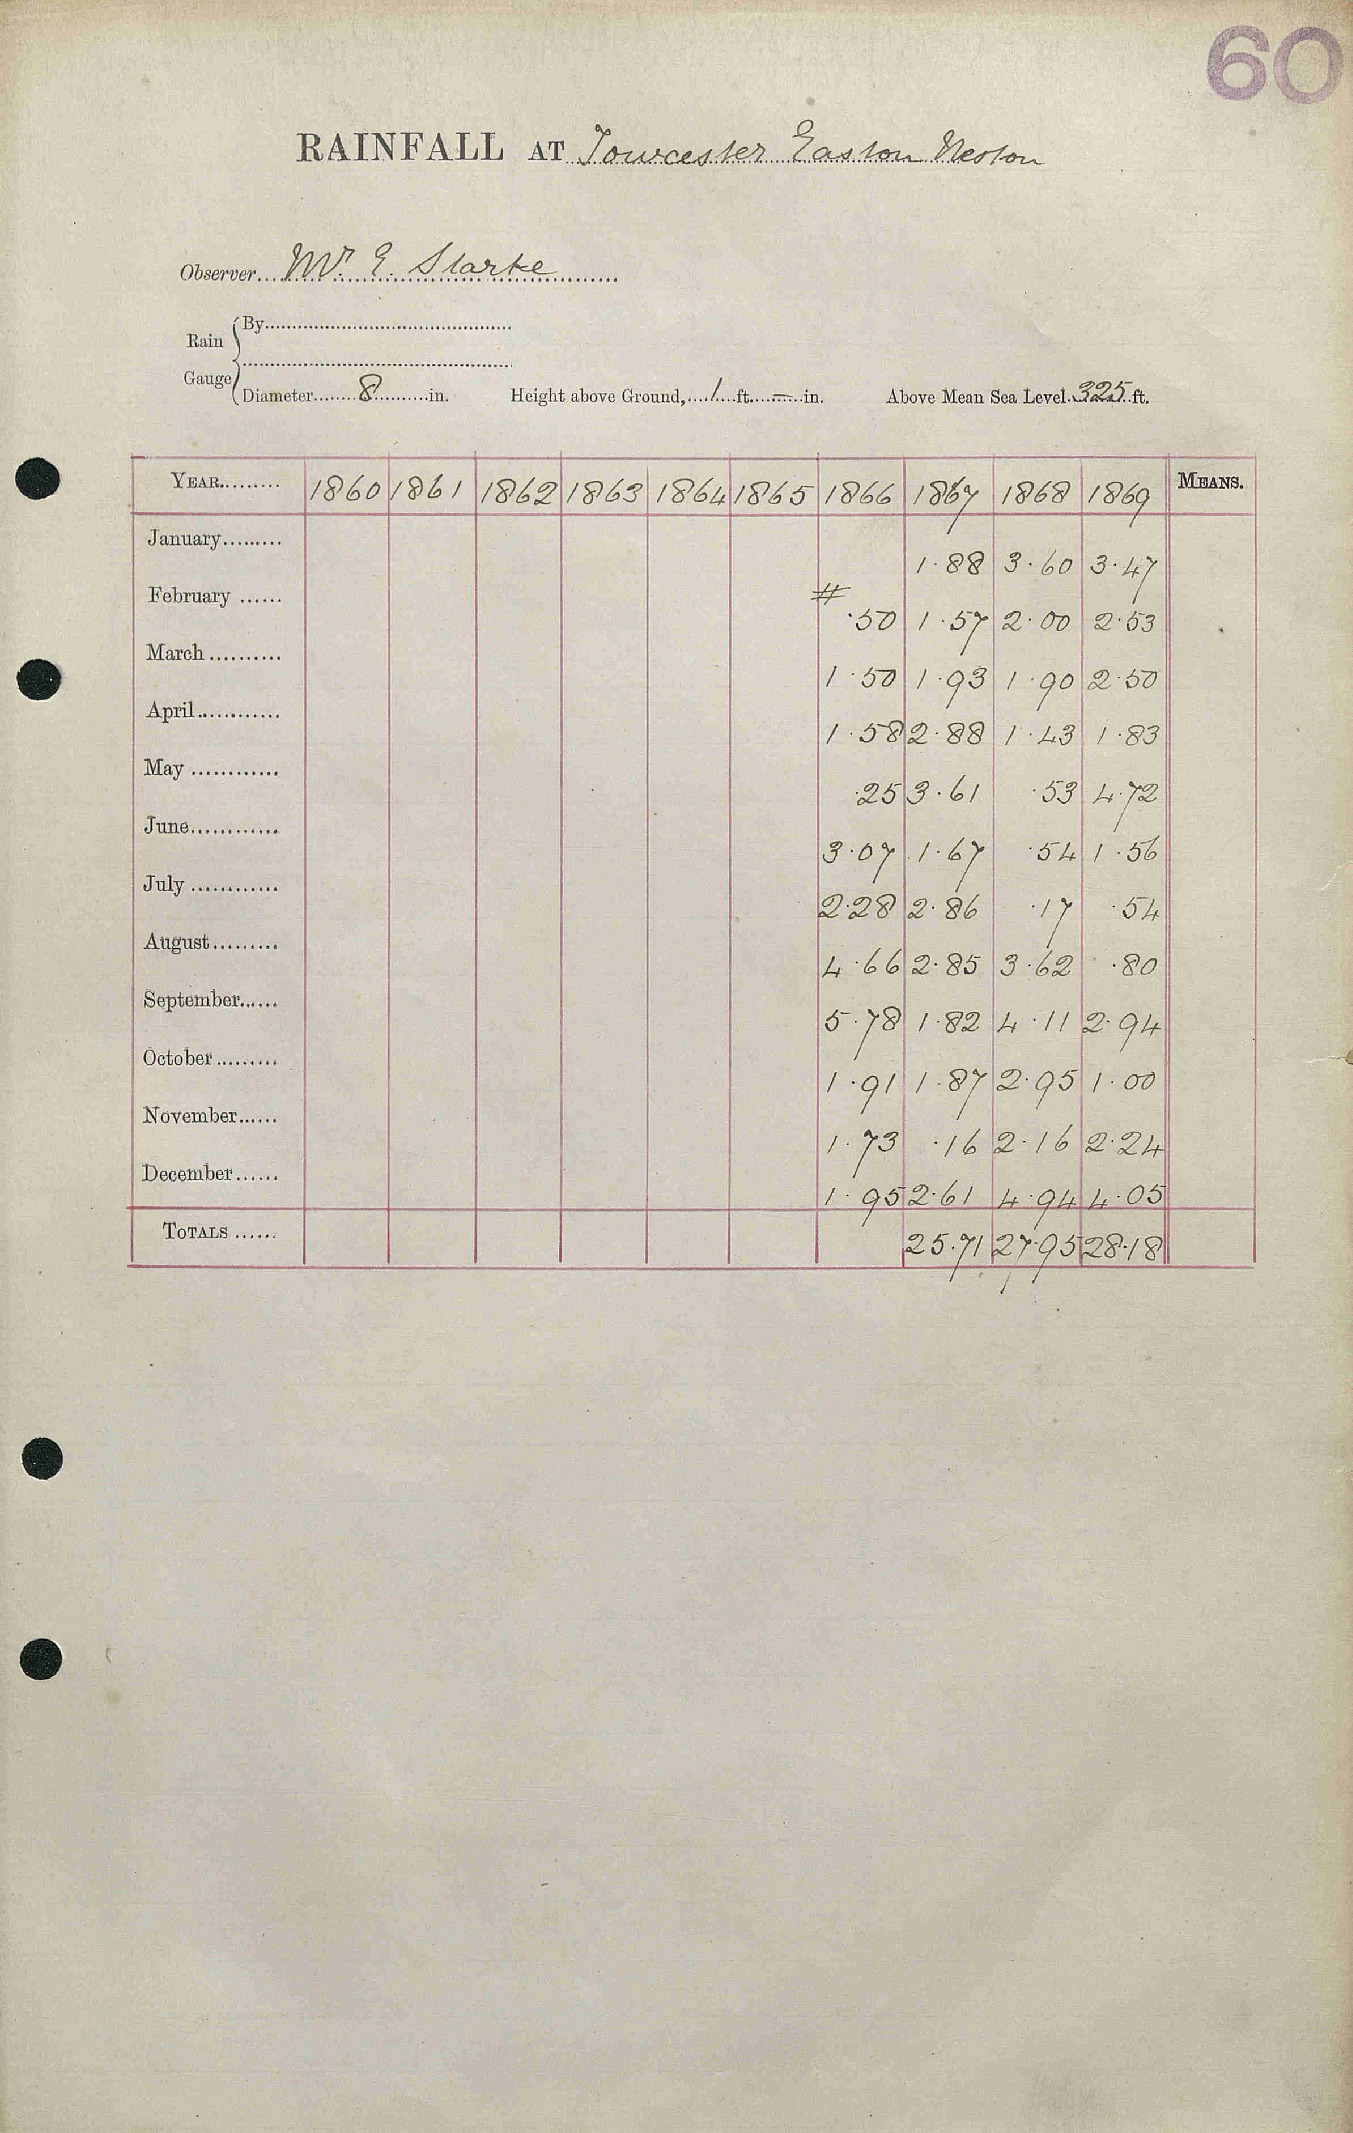 60
RAINFALL AT Towcester Easton Neston
Observer Mr. E. Starke
Rain Gauge
By
Diameter 8 in. Height above Ground, 1 ft. – in. Above Mean Sea Level 325 ft.
YEAR 1860 1861 1862 1863 1864 1865 1866 1867 1868 1869 MEANS.
January 1.88 3.60 3.47
February # .50 1.57 2.00 2.53
March 1.50 1.93 1.90 2.50
April 1.58 2.88 1.43 1.83
May .25 3.61 .53 4.72
June 3.07 1.67 .54 1.56
July 2.28 2.86 .17 .54
August 4.66 2.85 3.62 .80
September 5.78 1.82 4.11 2.94
October 1.91 1.87 2.95 1.00
November 1.73 .16 2.16 2.24
December 1.95 2.61 4.94 4.05
TOTALS 25.71 27.95 28.18